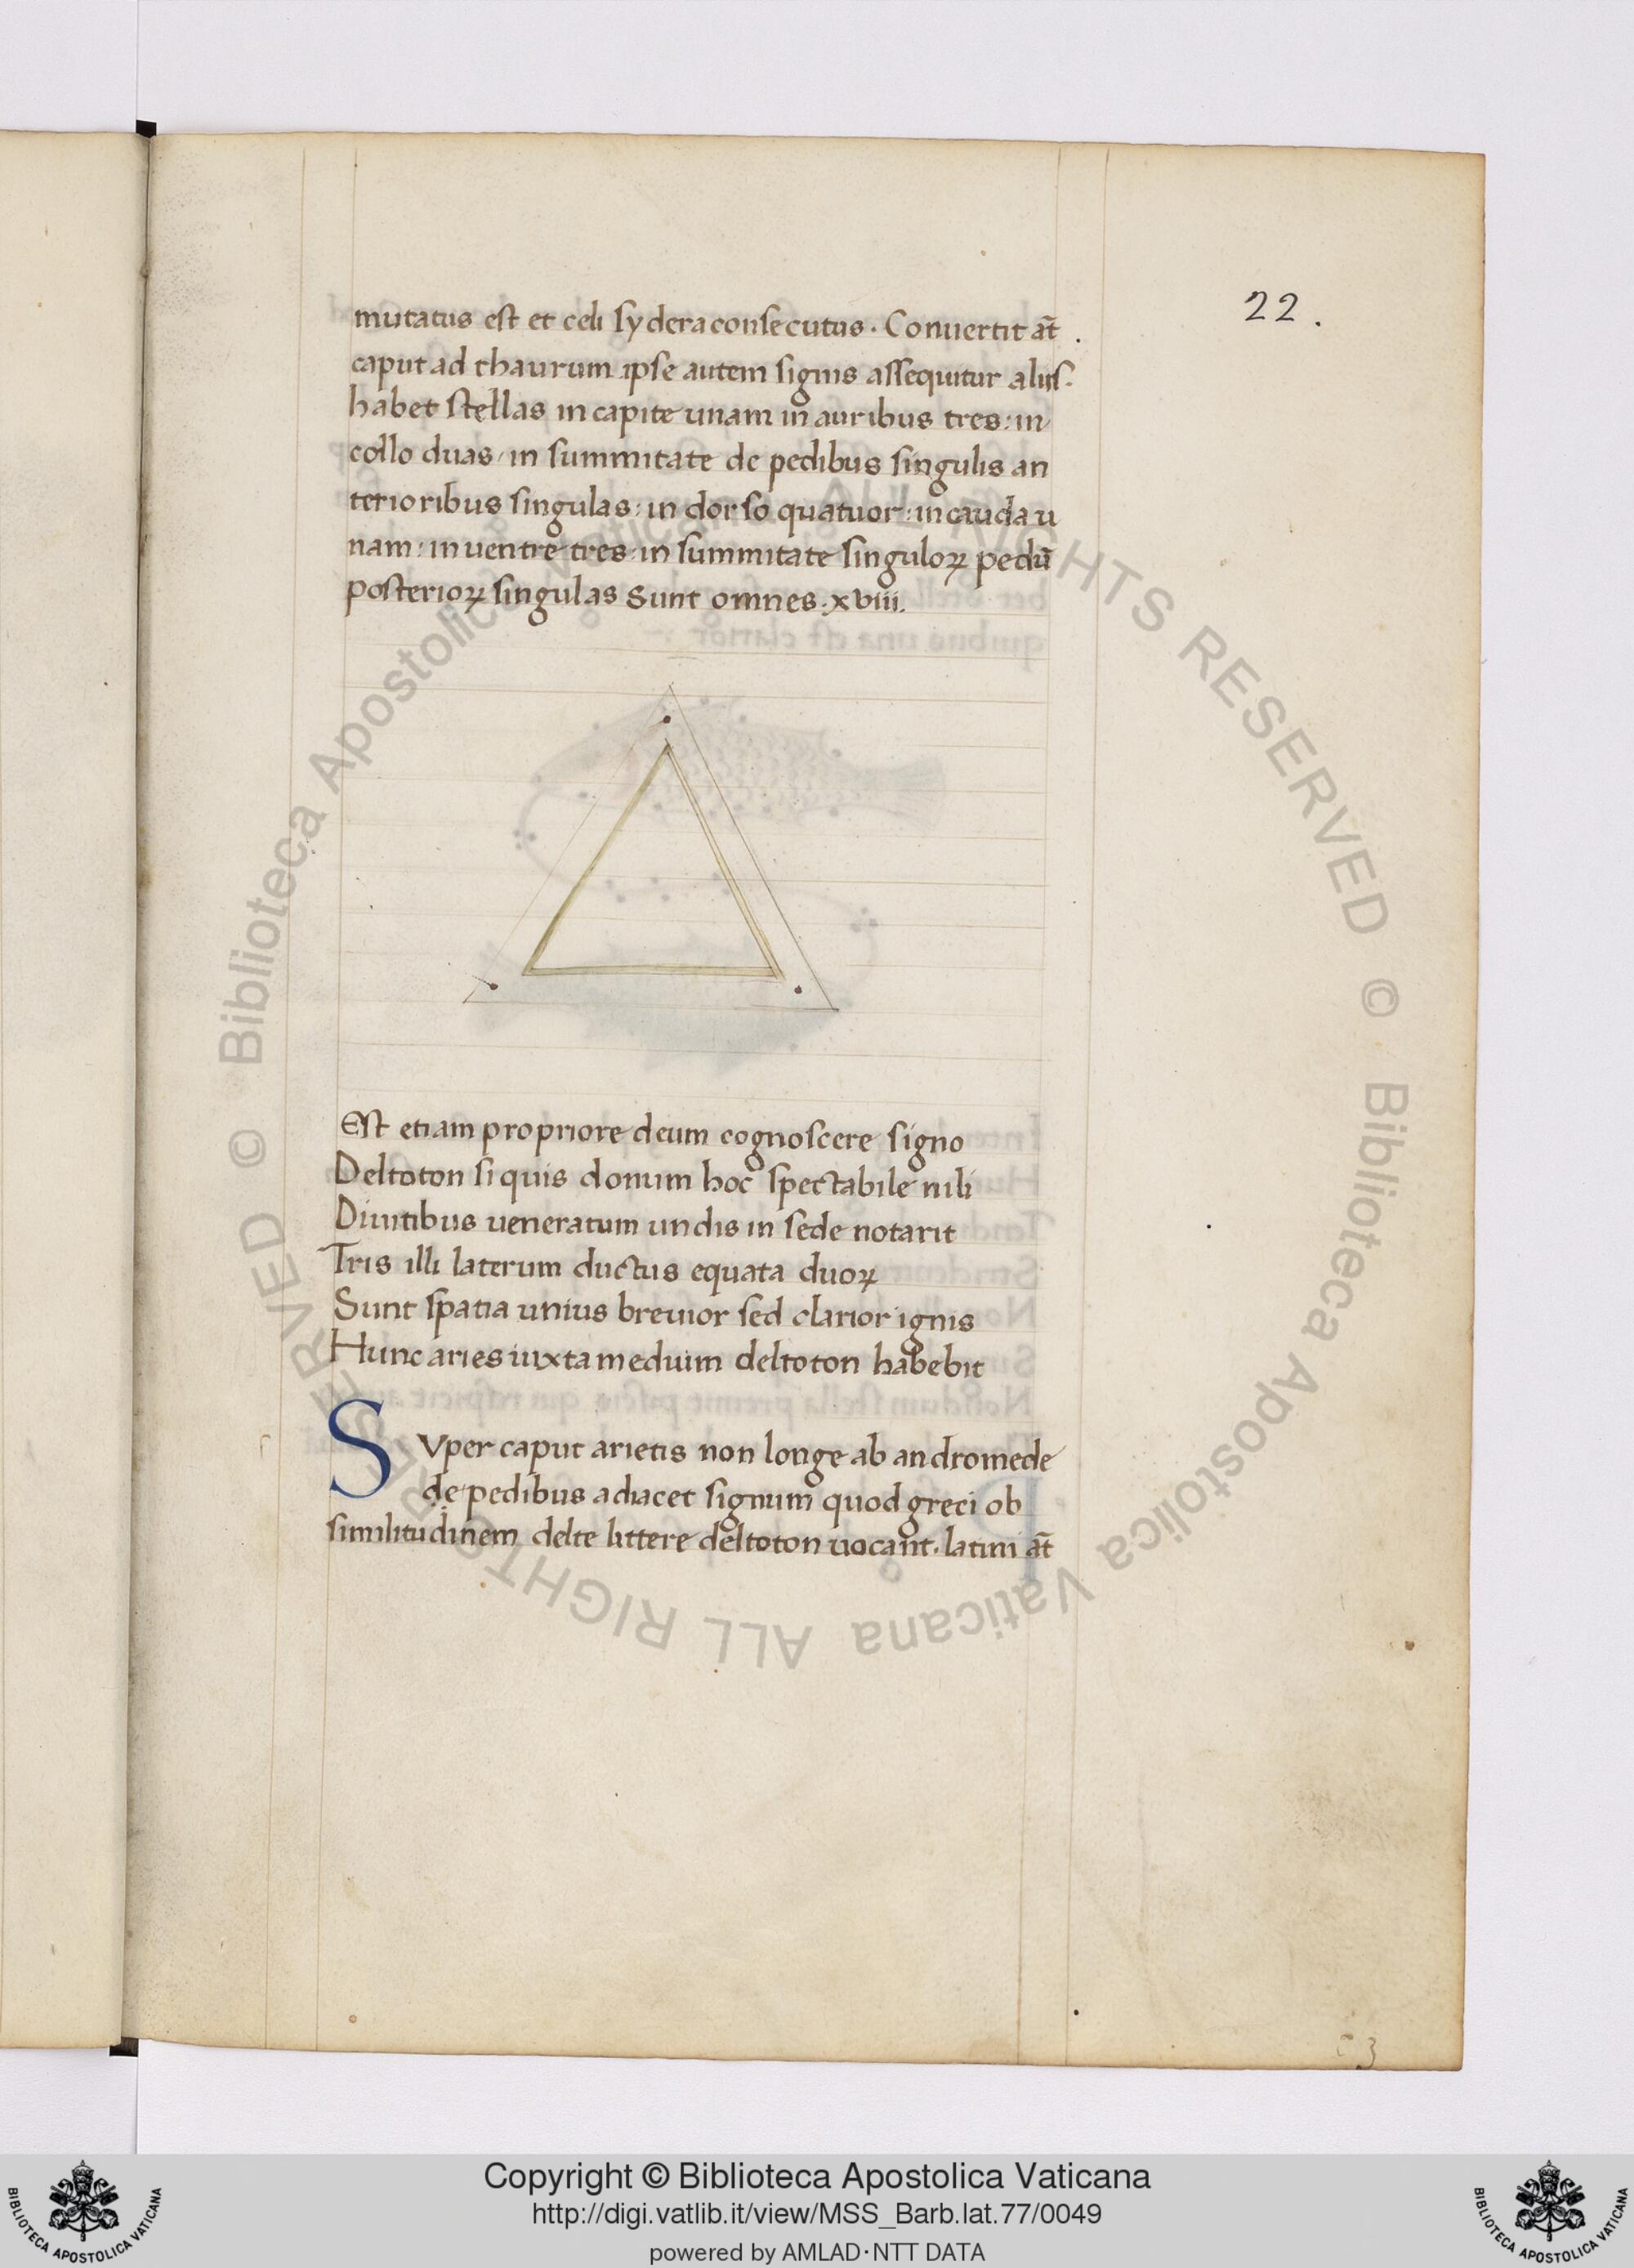 22.
mutatus est et celi sydera consecutus. Conuertit at̄.
caput ad thaurum ipse autem signis assequitur aliis.
habet stellas in capite unam in auribus tres: in
collo duas, in summitate de pedibus singulis an
terioribus singulas: in dorso quatuor: in cauda u
nam: in uentre tres: in summitate singuloꝝ pedū
posterioꝝ singulas Sunt omnes. xviii.
Est etiam propriore deum cognoscere signo
Deltoton si quis donum hoc spectabile nili
Diuitibus ueneratum undis in sede notarit
Tris illi laterum ductus equata duoꝝ
Sunt spatia unius breuior sed clarior ignis
Hunc aries iuxta medium deltoton habebit
SVper caput arietis non longe ab andromede
de pedibus adiacet signum quod greci ob
similitudinem delte littere deltoton uocant. latini at̄
c 3
© Biblioteca Apostolica Vaticana ALL RIGHTS RESERVED © Biblioteca Apostolica Vaticana ALL RIGHTS RESERVED
Copyright © Biblioteca Apostolica Vaticana
http://digi.vatlib.it/view/MSS_Barb.lat.77/0049
powered by AMLAD·NTT DATA
BIBLIOTECA APOSTOLICA VATICANA
BIBLIOTECA APOSTOLICA VATICANA